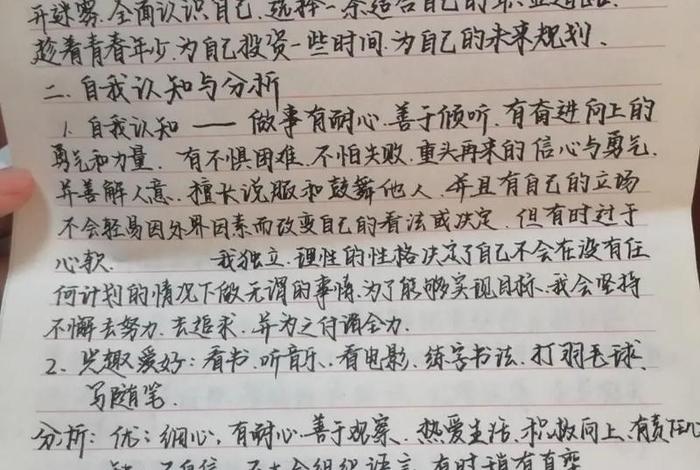 开迷雾.全面认识自己.选择一条适合自己的职业道路.
趁着青春年少.为自己投资一些时间.为自己的未来规划.
二.自我认知与分析
1.自我认知——做事有耐心.善于倾听.有奋进向上的
勇气和力量.有不惧困难.不怕失败.重头再来的信心与勇气.
并善解人意.擅长说服和鼓舞他人.并且有自己的立场
不会轻易因外界因素而改变自己的看法或决定.但有时过于
心软. 我独立.理性的性格决定了自己不会在没有任
何计划的情况下做无谓的事情.为了能够实现目标.我会坚持
不懈去努力.去追求.并为之付诸全力.
2.兴趣爱好:看书.听音乐.看电影.练字书法.打羽毛球.
写随笔.
分析:优:细心.有耐心.善于观察.热爱生活.积极向上.有责任心
缺:不自信.不太会组织语言.有时稍有自卑